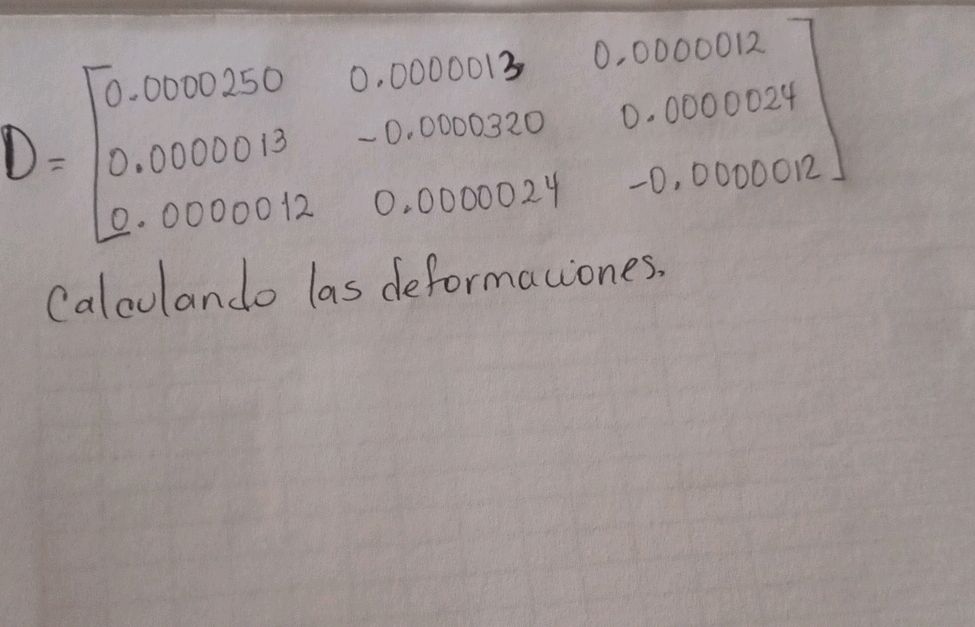 0.0000250 0.0000013 0.0000012
D= 0.0000013 -0.0000320 0.0000024
0.0000012 0.0000024 -0.0000012
Calculando las deformaciones.